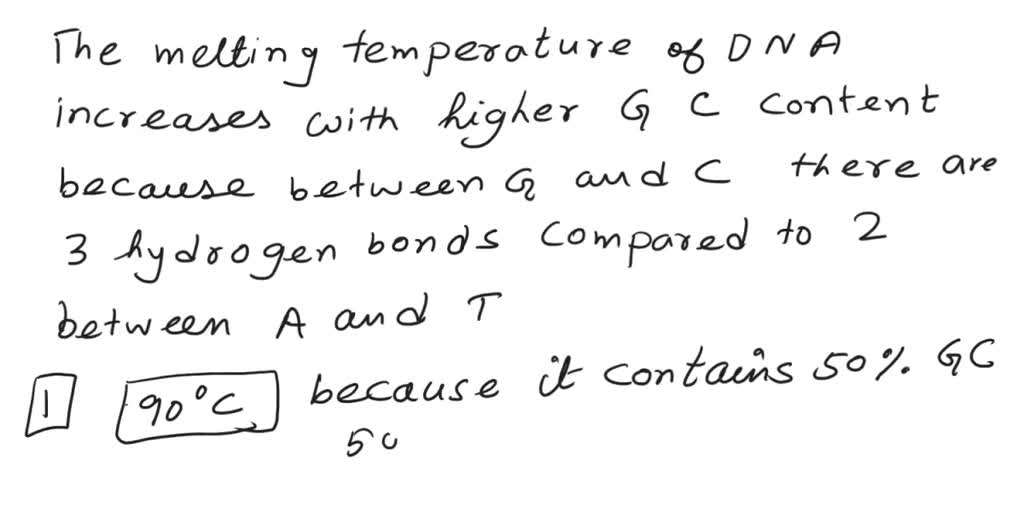 The melting temperature of DNA
increases with higher G C content
because between G and C there are
3 hydrogen bonds compared to 2
between A and T
1 90°C because it contains 50%. GC
50